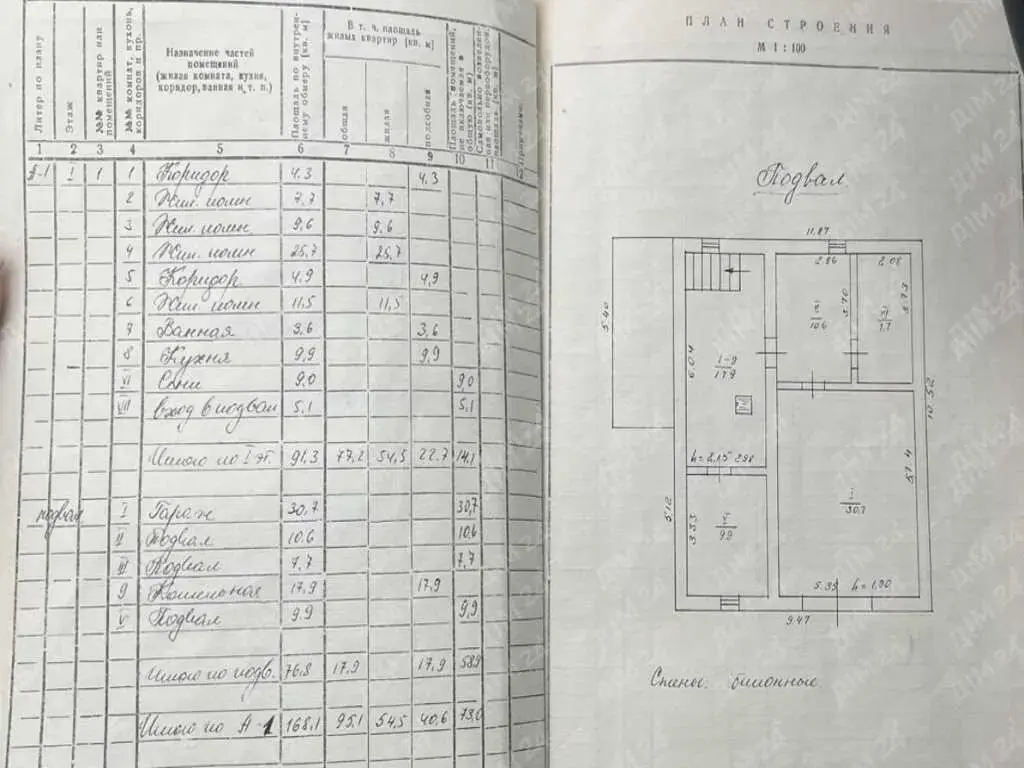 Литер по плану
Этаж
№№ квартир или помещений
№№ комнат, кухонь, коридоров и пр.
Назначение частей
помещений
(жилая комната, кухня,
коридор, ванная и т. п.)
Площадь по внутреннему обмеру (кв. м)
В т. ч. площадь
жилых квартир (кв. м)
общая
жилая
подсобная
Площадь помещений, не включаемая в общую (кв. м)
1 2 3 4 5 6 7 8 9 10 11
А-1 I 1 1 Коридор 4.3 4.3
2 Жил. комн 7,7 7,7
3 Жил. комн 9,6 9,6
4 Жил. комн 25,7 25,7
5 Коридор 4,9 4,9
6 Жил. комн 11,5 11,5
Ванная 3,6
8 Кухня 9,9 9,9
VI Сени 9,0 9,0
VII вход в подвал 5,1 5,1
Итого по I эт. 91,3 77,2 54,5 22.7 14,1
подвал I Гараж 30.7 30,7
II Подвал 10.6 10.6
III Подвал 7,7 7,7
9 Котельная 17,9 17,9
V Подвал 9.9 9,9
Итого по подв. 76.8 17,9 17,9 58.9
Итого по А-1 168,1 95,1 54,5 40,6 73,0
ПЛАН СТРОЕНИЯ
М 1 : 100
Подвал
11.87
2.86 2.08
5.40
3.70
3.73
II
10.6
III
7.7
6.04
I-9
17.9
10.52
h=2,15 2.98
5.12
3.33
V
9.9
I
30.7
5.39 h=1.90
9.47
Стены: бутонные
ДІМ 24